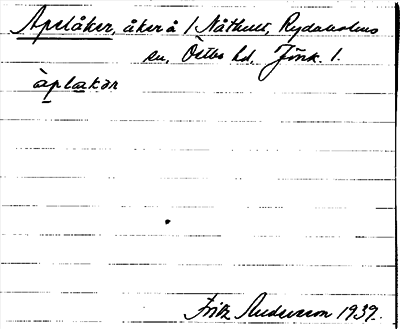 Apelåker, åker å 1 Nåthult, Rydaholms
sn, Östbo hd, Jönk. l.
àplakər
Fritz Andersson 1939.